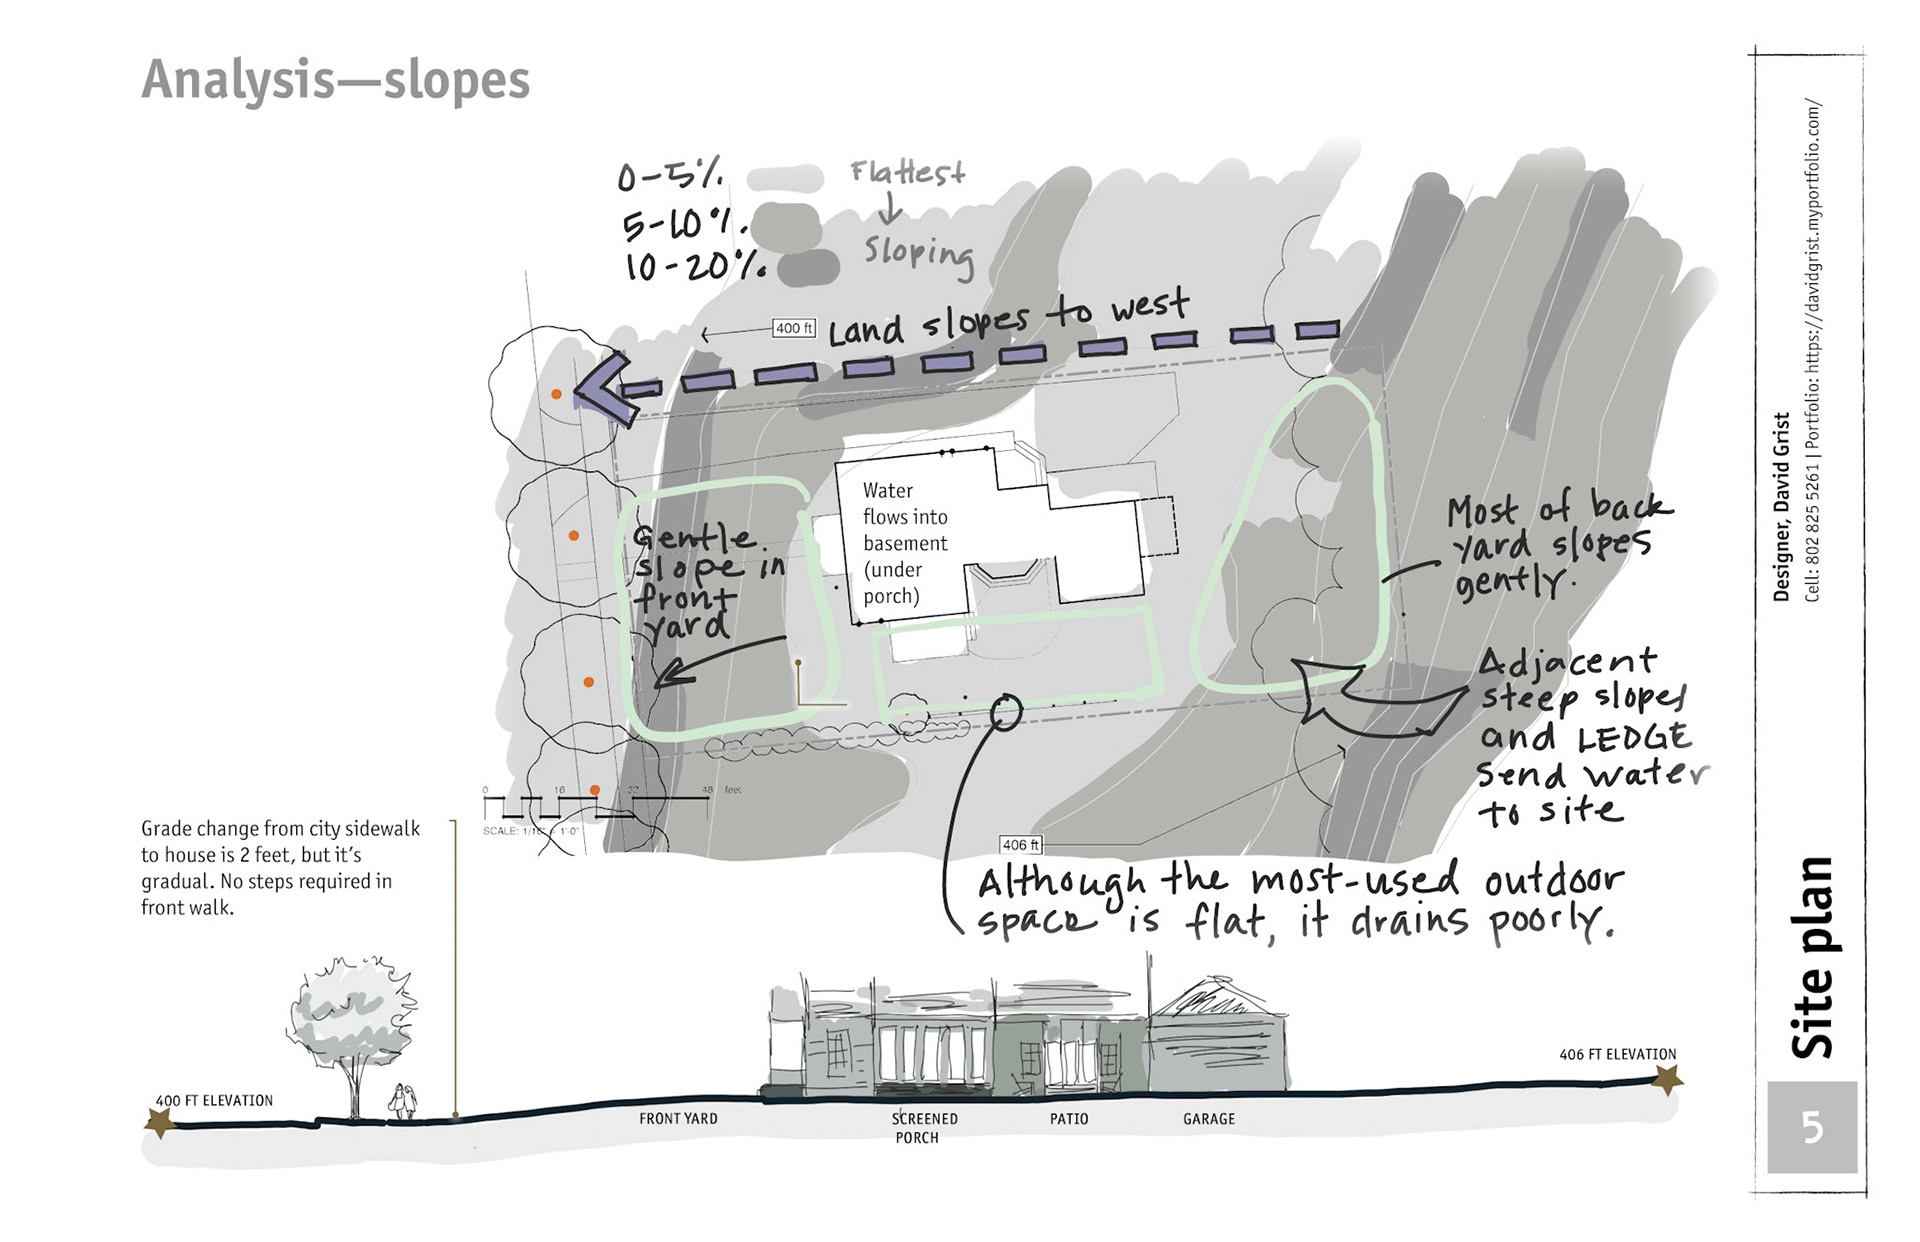 Analysis—slopes
0-5%.
5-10%.
10-20%.
Flattest
Sloping
400 ft
Land slopes to west
Water
flows into
basement
(under
porch)
Gentle
slope in
front
yard
Most of back
yard slopes
gently.
Adjacent
steep slopes
and LEDGE
send water
to site
0 16 32 48 feet
SCALE: 1/16" = 1'-0"
406 ft
Although the most-used outdoor
space is flat, it drains poorly.
Grade change from city sidewalk
to house is 2 feet, but it's
gradual. No steps required in
front walk.
400 FT ELEVATION
FRONT YARD
SCREENED
PORCH
PATIO
GARAGE
406 FT ELEVATION
Designer, David Grist
Cell: 802 825 5261 | Portfolio: https://davidgrist.myportfolio.com/
Site plan
5